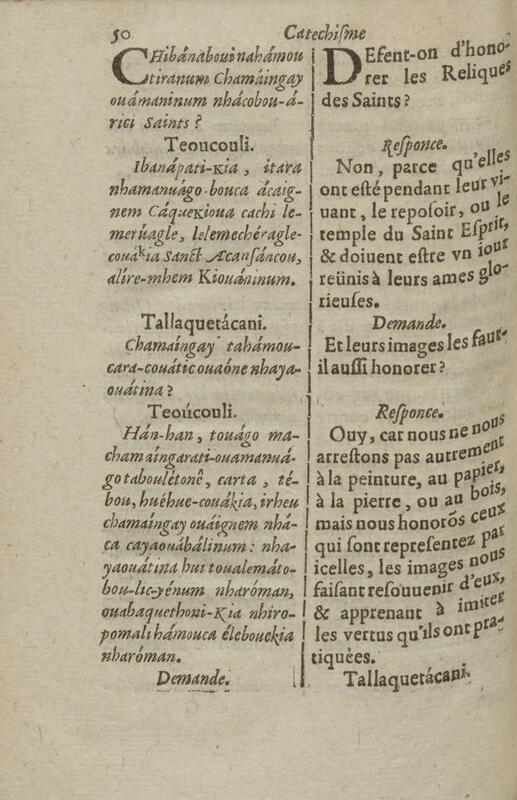 50 Catechiſme
CHibánabouinahámou
tiranum Chamáingay
ouámaninum nhácobou-á-
rici Saints ?
Teoucouli.
Ibanápati-kia , itara
nhamanuágo-bouca ácaig-
nem Cáquekioua cachi le-
merúagle, lelemechéragle-
couákia Sanct Acanſáncou,
alíre-mhem Kiouáninum.
Tallaquetácani.
Chamaíngay tahámou-
cara-couátic ouaóne nhaya-
ouátina ?
Teoúcouli.
Hán-han , touágo ma-
chamaíngarati-ouamanuá-
go taboulétonê, carta , té-
bou, huéhue-couákia, irheu
chamaíngay ouáignem nhá-
ca cayaouábálinum : nha-
yaouátina hui toualemáto-
bou-lic-yénum nharóman,
ouabaquethoni-Kia nhiro-
pomali hámouca élebouekia
nharóman.
Demande.
DEfent-on d'hono-
rer les Reliques
des Saints ?
Reſponce.
Non, parce qu'elles
ont eſté pendant leur vi-
uant , le repoſoir, ou le
temple du Saint Eſprit,
& doiuent eſtre vn iour
reünis à leurs ames glo-
rieuſes.
Demande.
Et leurs images les faut-
il auſſi honorer ?
Reſponce.
Ouy, car nous ne nous
arreſtons pas autrement
à la peinture, au papier,
à la pierre, ou au bois,
mais nous honorõs ceux
qui ſont repreſentez par
icelles, les images nous
faiſant reſouuenir d'eux,
& apprenant à imiter
les vertus qu'ils ont pra-
tiquées.
Tallaquetácani.